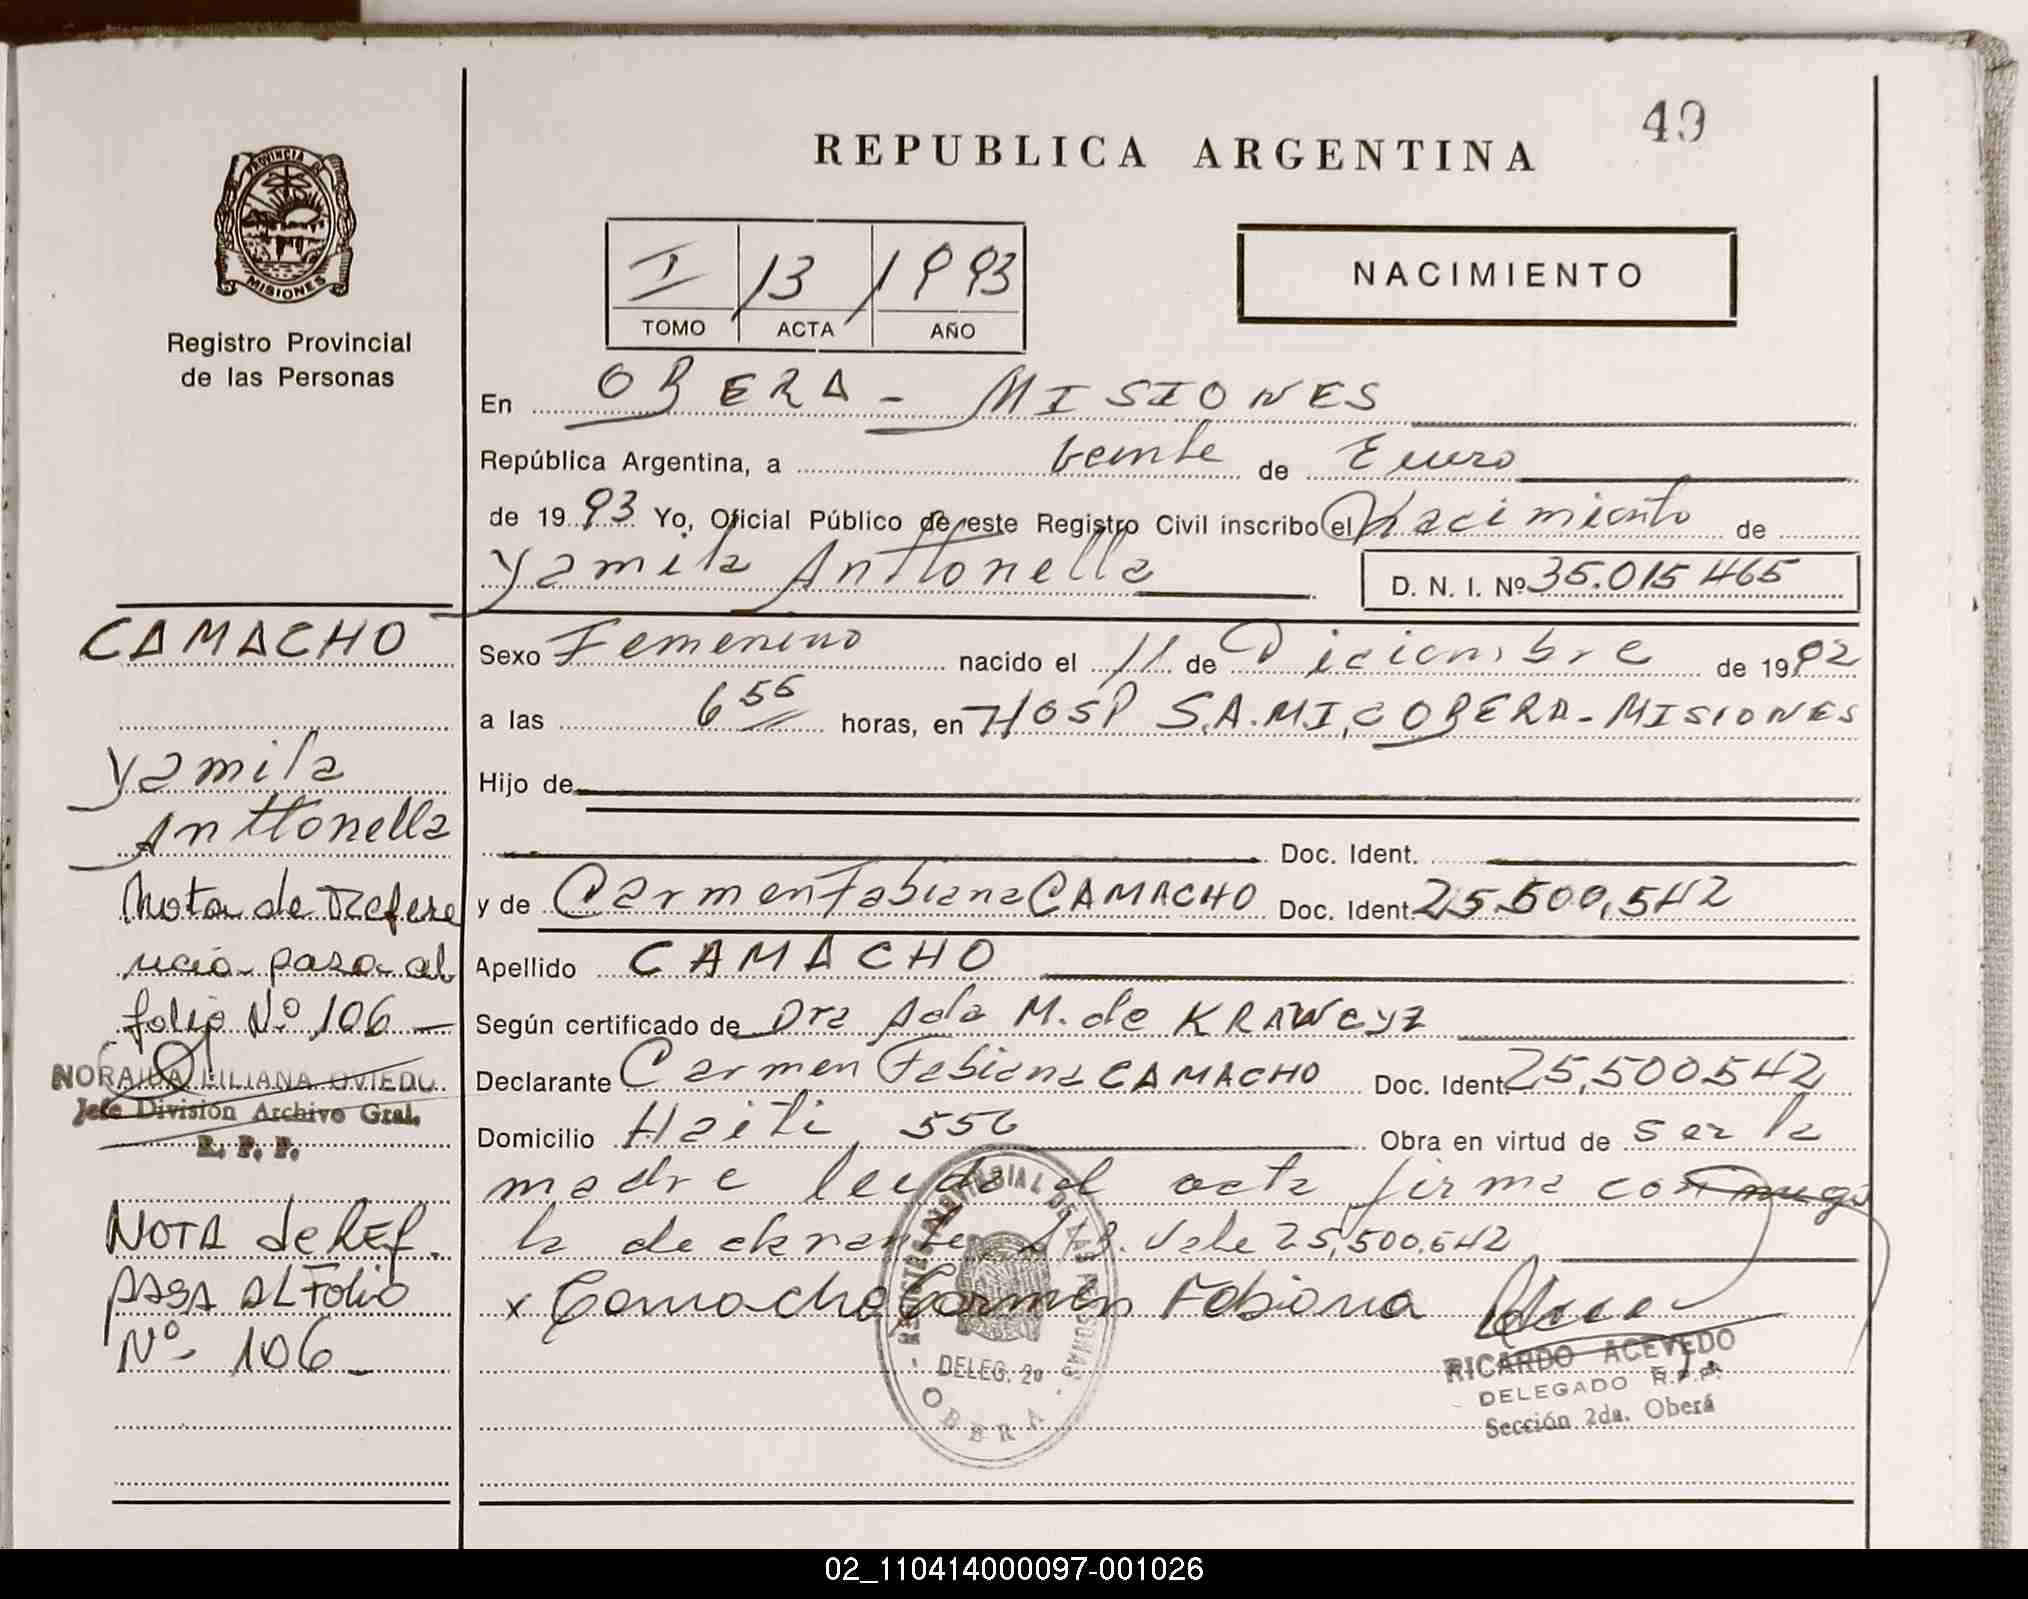 49
REPUBLICA ARGENTINA
PROVINCIA DE
MISIONES
Registro Provincial
de las Personas
I 13 1993
TOMO ACTA AÑO
NACIMIENTO
En OBERA - MISIONES
República Argentina, a veinte de Enero
de 1993 Yo, Oficial Público de este Registro Civil inscribo el Nacimiento de
Yamila Anttonella D. N. I. Nº 35.015465
CAMACHO
Yamila
Anttonella
Nota de Refere
ncia pasa al
folio Nº 106
NORAIDA LILIANA OVIEDO
Jefe División Archivo Gral.
R. P. P.
NOTA de REF.
PASA AL Folio
Nº 106
Sexo Femenino nacido el 11 de Diciembre de 1992
a las 6 55 horas, en HOSP S.A.M.I.C OBERA - MISIONES
Hijo de
Doc. Ident.
y de Carmen Fabiana CAMACHO Doc. Ident. 25.500.542
Apellido CAMACHO
Según certificado de Dra Ada M. de KRAWCYZ
Declarante Carmen Fabiana CAMACHO Doc. Ident. 25.500542
Domicilio Haiti 556 Obra en virtud de ser la
madre leida el acta firma conmigo
la declarante Vale 25,500,542
x Camacho Carmen Fabiana
REGISTRO PROVINCIAL DE LAS PERSONAS
DELEG. 2º
OBERA
RICARDO ACEVEDO
DELEGADO R.P.P.
Sección 2da. Oberá
02_110414000097-001026